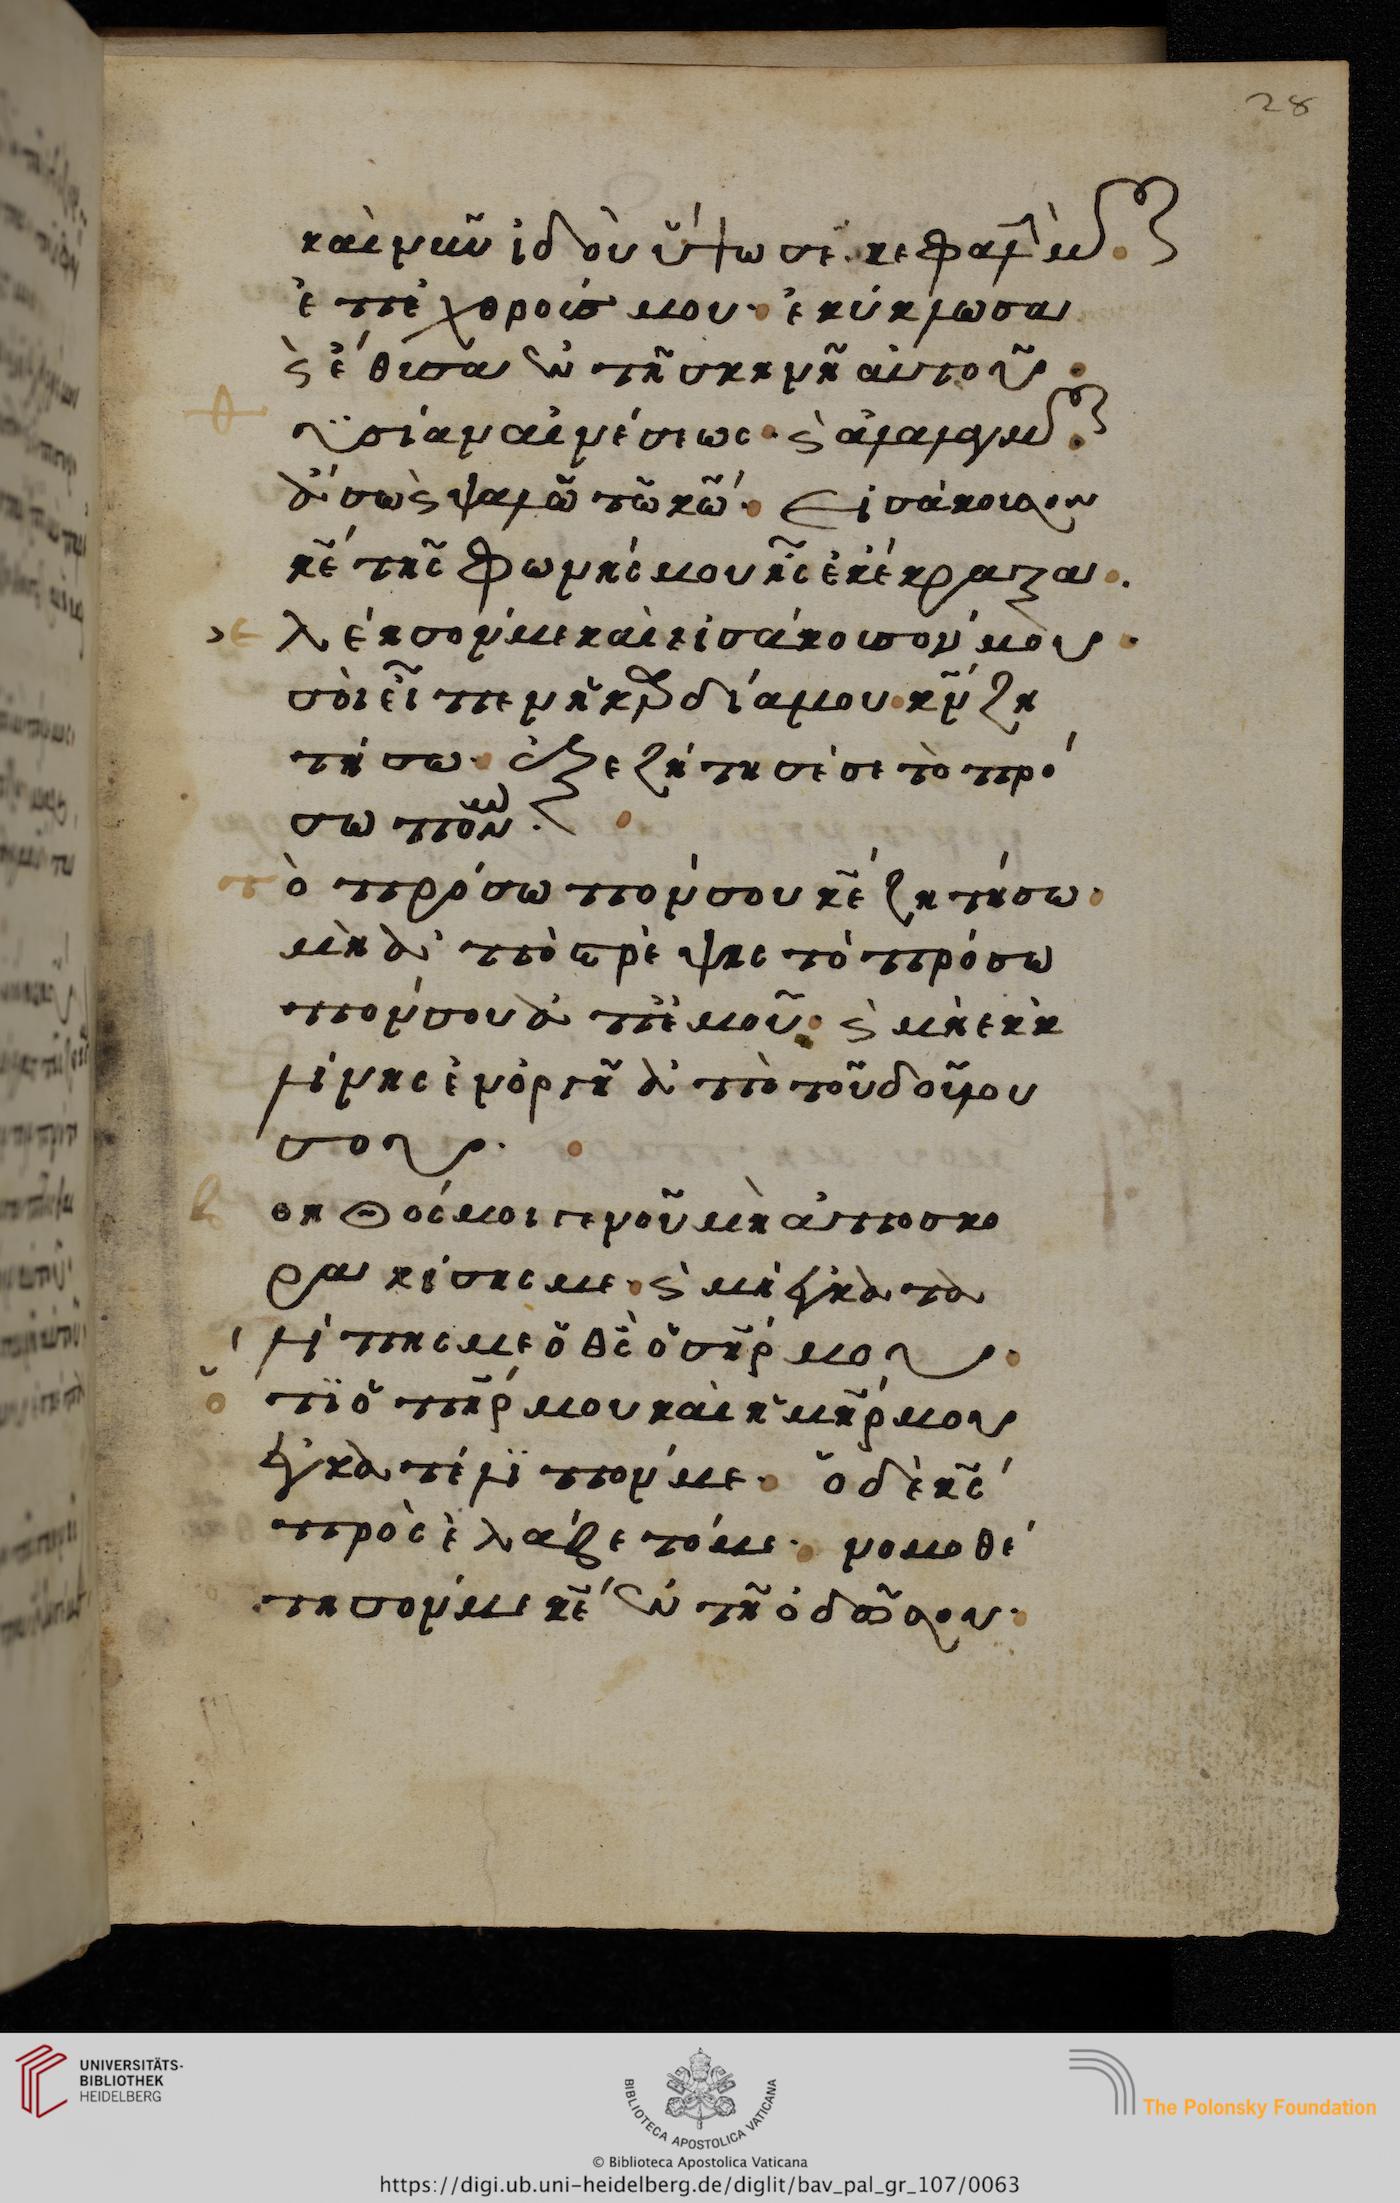 28
καὶ νῦν ἰδοὺ ὕψωσε κεφαλήν μου·
ἐπ' ἐχθρούς μου· ἐκύκλωσα
ϗ ἔθυσα ἐν τῇ σκηνῇ αὐτοῦ·
θυσίαν αἰνέσεως· ϗ ἀλαλαγμοῦ·
ἄσω ϗ ψαλῶ τῶ κῶ· Εἰσάκουσον
κε τῆς φωνῆς μου ἧς ἐκέκραξα·
ἐλέησόν με καὶ εἰσάκουσόν μου·
σοὶ εἶπεν ἡ καρδία μου κν ζη
τήσω· ἐξεζήτησέ σε τὸ πρό
σωπόν μου·
τὸ πρόσωπόν σου κε ζητήσω·
μὴ ἀποστρέψης τὸ πρόσω
πόν σου ἀπ' ἐμοῦ· ϗ μὴ ἐκκ
λίνης ἐν ὀργῆ ἀπὸ τοῦ δούλου
σου·
βοηθός μοι γενοῦ μὴ ἀποσκο
ρακίσης με· ϗ μὴ ἐγκατα
λίπης με ὁ θς ὁ σηρ μου·
ὅτι ὁ πηρ μου καὶ ἡ μηρ μου
ἐγκατέλιπόν με· ὁ δὲ κς
προσελάβετό με· νομοθέ
τησόν με κε ἐν τῆ ὁδῶ σου·
UNIVERSITÄTS-
BIBLIOTHEK
HEIDELBERG
BIBLIOTECA APOSTOLICA VATICANA
The Polonsky Foundation
© Biblioteca Apostolica Vaticana
https://digi.ub.uni-heidelberg.de/diglit/bav_pal_gr_107/0063